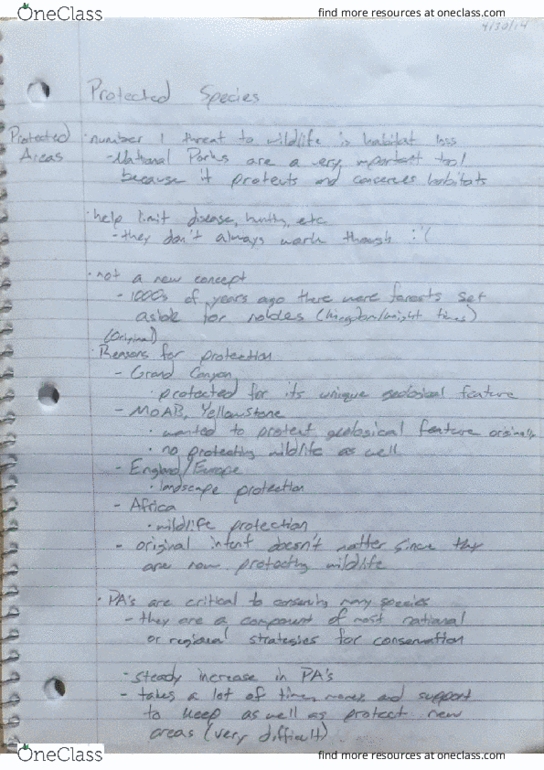 OneClass
find more resources at oneclass.com
4/30/14
Protected Species
Protected Areas
· number 1 threat to wildlife is habitat loss
- National Parks are a very important tool
because it protects and conserves habitats
· help limit disease, hunting, etc
- they don't always work though :'(
· not a new concept
- 1000s of years ago there were forests set
aside for nobles (kingdom/knight times)
(original)
· Reasons for protection
- Grand Canyon
· protected for its unique geological feature
- MOAB, Yellowstone
· wanted to protect geological feature originally
· no protecting wildlife as well
- England/Europe
· landscape protection
- Africa
· wildlife protection
- original intent doesn't matter since they
are now protecting wildlife
· PA's are critical to conserving many species
- they are a component of most national
or regional strategies for conservation
· steady increase in PA's
- takes a lot of time, money and support
to keep as well as protect new
areas (very difficult)
OneClass
find more resources at oneclass.com